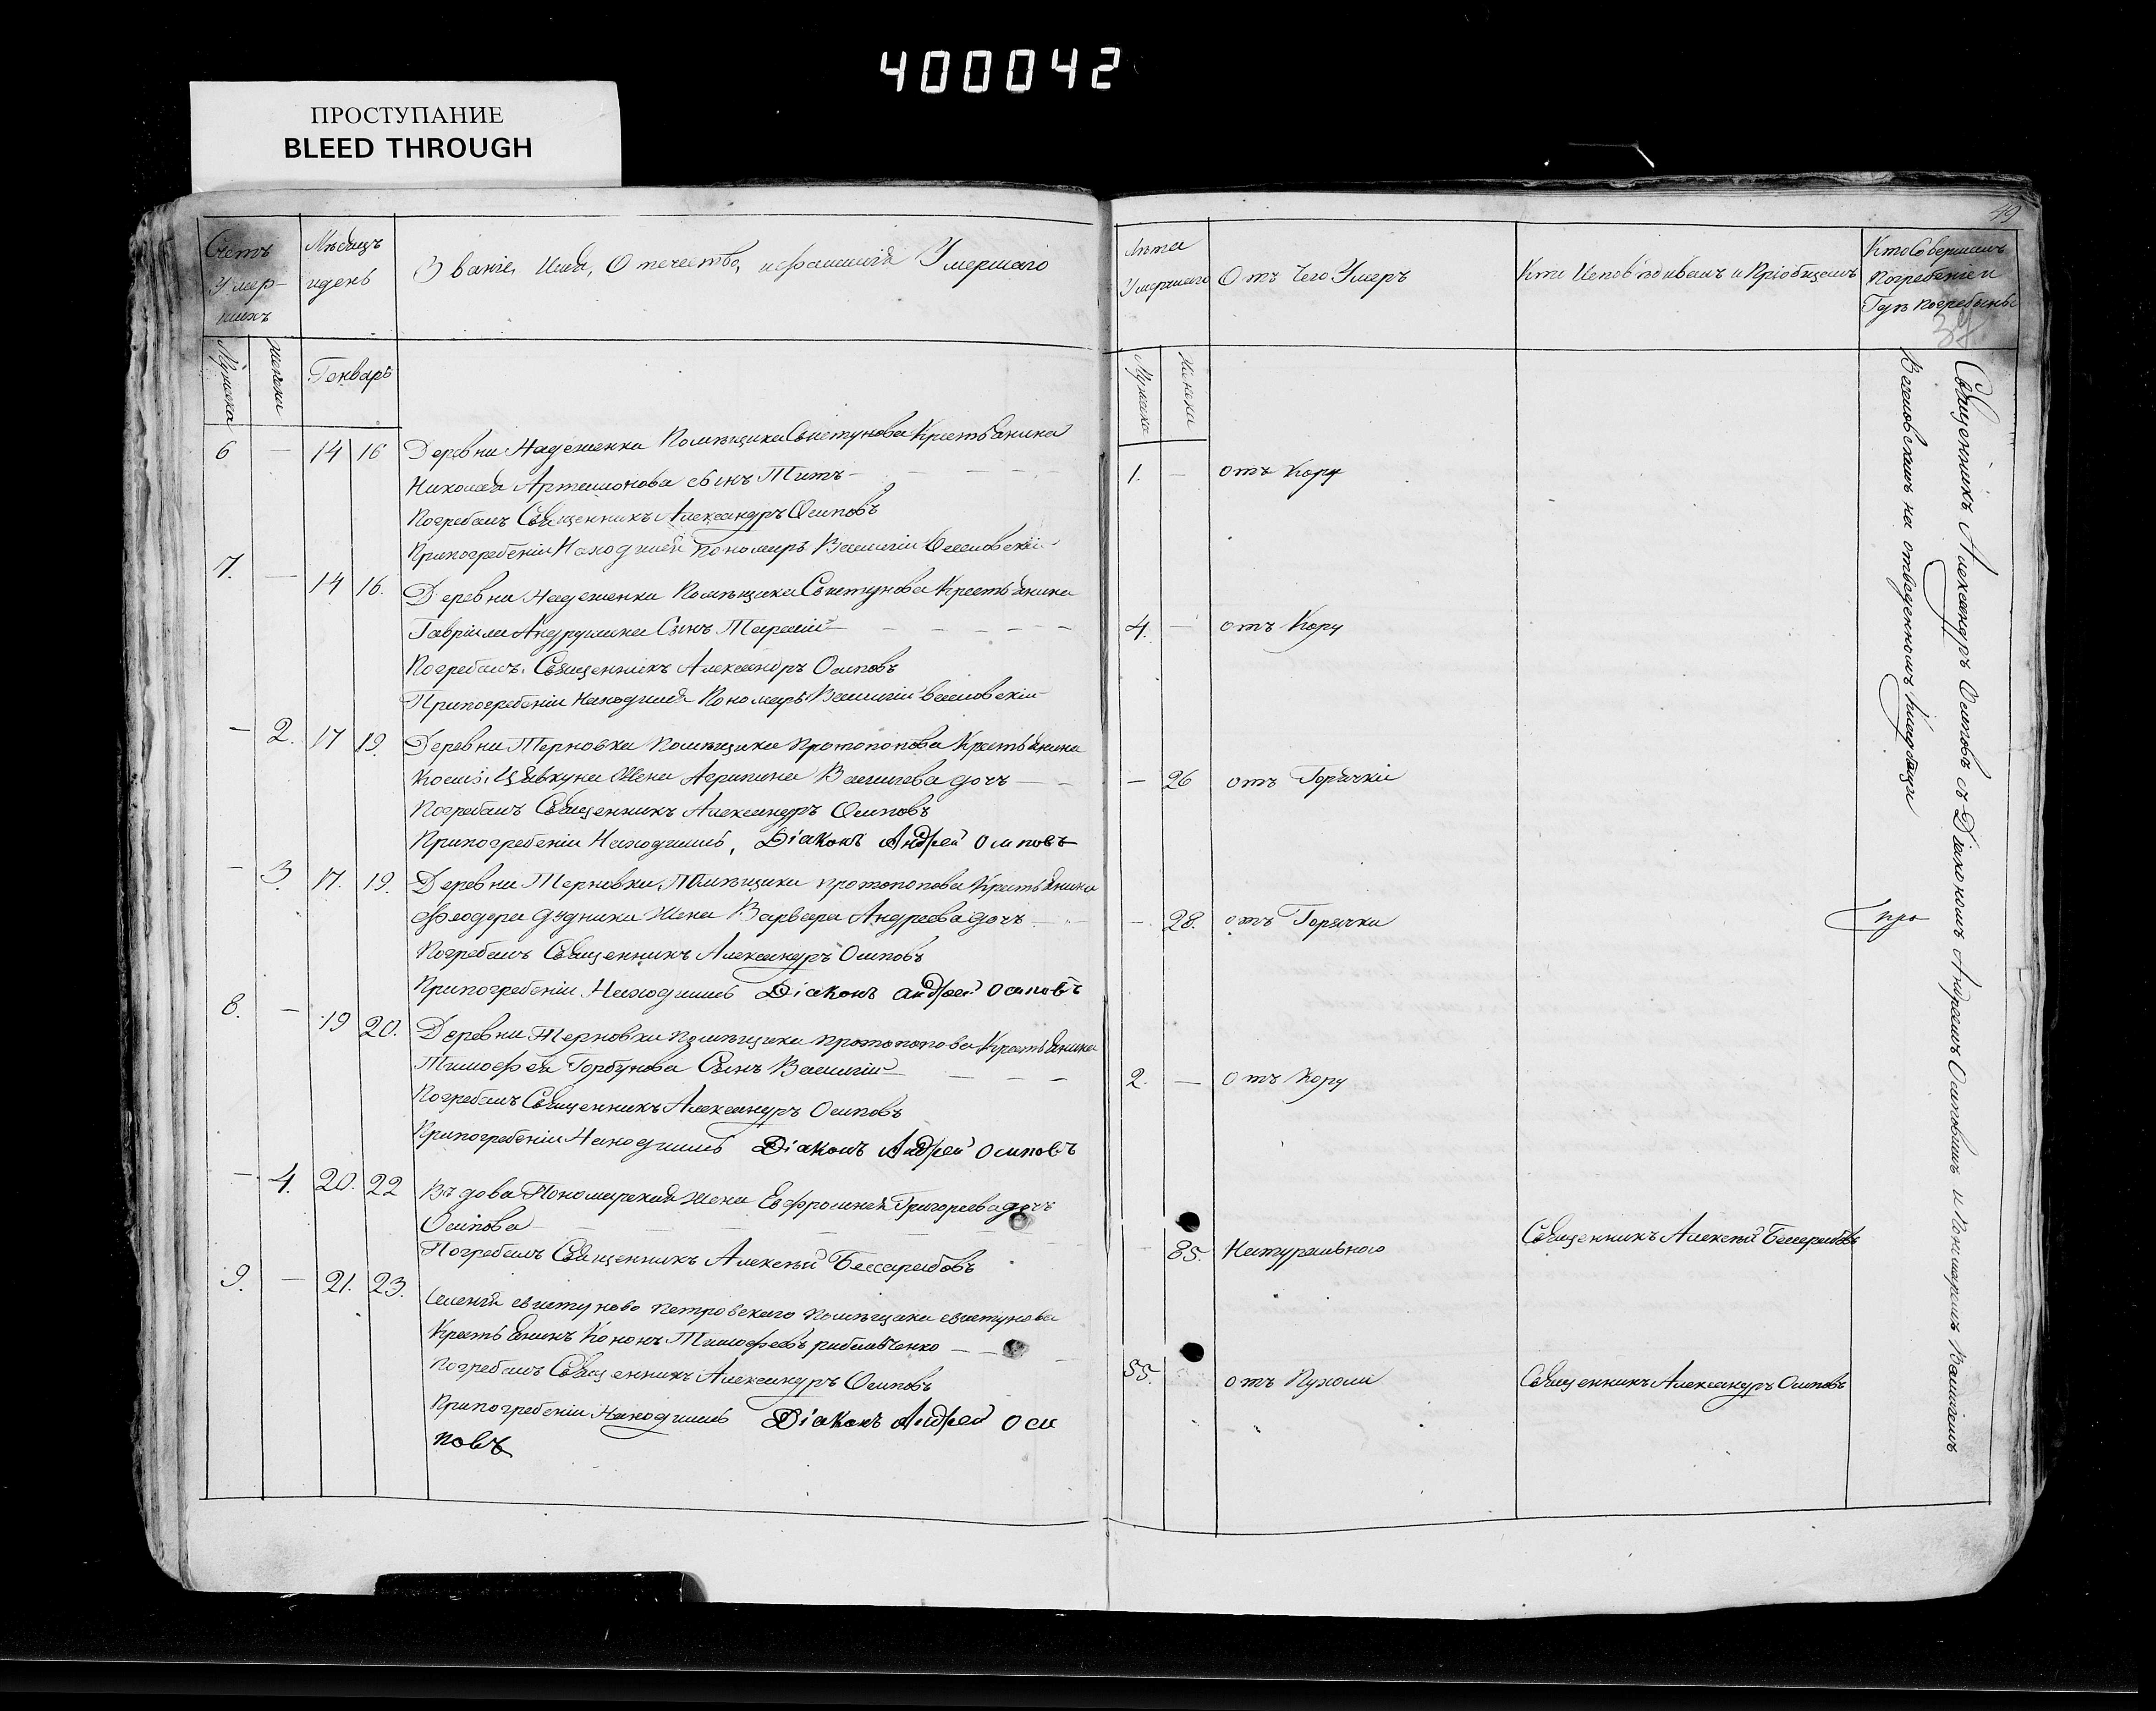 400042
ПРОСТУПАНИЕ
BLEED THROUGH
Счетъ Умер-шихъ
Мужеска
Женска
Мѣсяцъ идень
Генварь
Званіе, Имя, Отечество, ифамилія Умершаго
6 — 14 16 Деревни Надеженки Помѣщика Свистунова Крестьянина
Николая Артемонова сынъ Титъ —
Погребалъ Священникъ Александръ Осиповъ
Припогребеніи Находился Пономарь Василій Веселовскій
7. — 14 16. Деревни Надеженки Помѣщика Свистунова Крестьянина
Гавріила Андрушина Сынъ Тарасій —
Погребалъ Священникъ Александръ Осиповъ
Припогребеніи Находился Пономарь Василій Веселовскій
— 2. 17 19. Деревни Терновки Помѣщика Протопопова Крестьянина
Жена Агрипина Васильева дочь —
Погребалъ Священникъ Александръ Осиповъ
Припогребеніи Находились, Діаконъ Андрей Осиповъ
— 3 17. 19. Деревни Терновки, Помѣщика протопопова Крестьянина
Феодора Дудника Жена Варвара Андреева дочь —
Погребалъ Священникъ Александръ Осиповъ
Припогребеніи Находились Діаконъ андрей осиповъ
8. — 19 20. Деревни Терновки Помѣщика протопопова Крестьянина
Тимофея Горбунова Сынъ Василій —
Погребалъ Священникъ Александръ Осиповъ
Припогребеніи Находились Діаконъ Андрей Осиповъ
— 4. 20. 22 Вдова Пономарская Жена Евфросинія Григорьева дочь
Осипова —
Погребалъ Священникъ Алексѣй Бессарабовъ
9. — 21. 23. Селенія свистуново петровскаго помѣщика свистунова
Крестьянинъ Кононъ Тимофеевъ
Погребалъ Священникъ Александръ Осиповъ
Припогребеніи Находились Діаконъ Андрей оси
повъ
49
Лѣта Умершаго
Мужеска
Женски
Отъ Чего Умеръ
Кто Исповѣдивалъ и Пріобщалъ
Кто Совершалъ
Погребеніе и
Гдѣ погребены
1. — отъ Кору
4. — отъ Кору
— 26 отъ Горячкі
— 28. отъ Горячки
2. — отъ Кору
85. Натуральнаго Священникъ Алексѣй Бессарабовъ
55. отъ Пухоли Священникъ Александръ Осиповъ
Священникъ Александръ Осиповъ съ Діакономъ Андреемъ Осиповымъ и Пономаремъ Василіемъ
Веселовскимъ на отведенномъ кладбищи
про